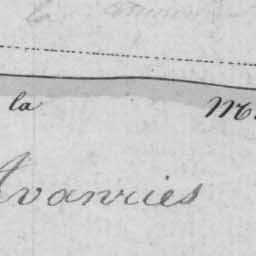 la M.
Avanries